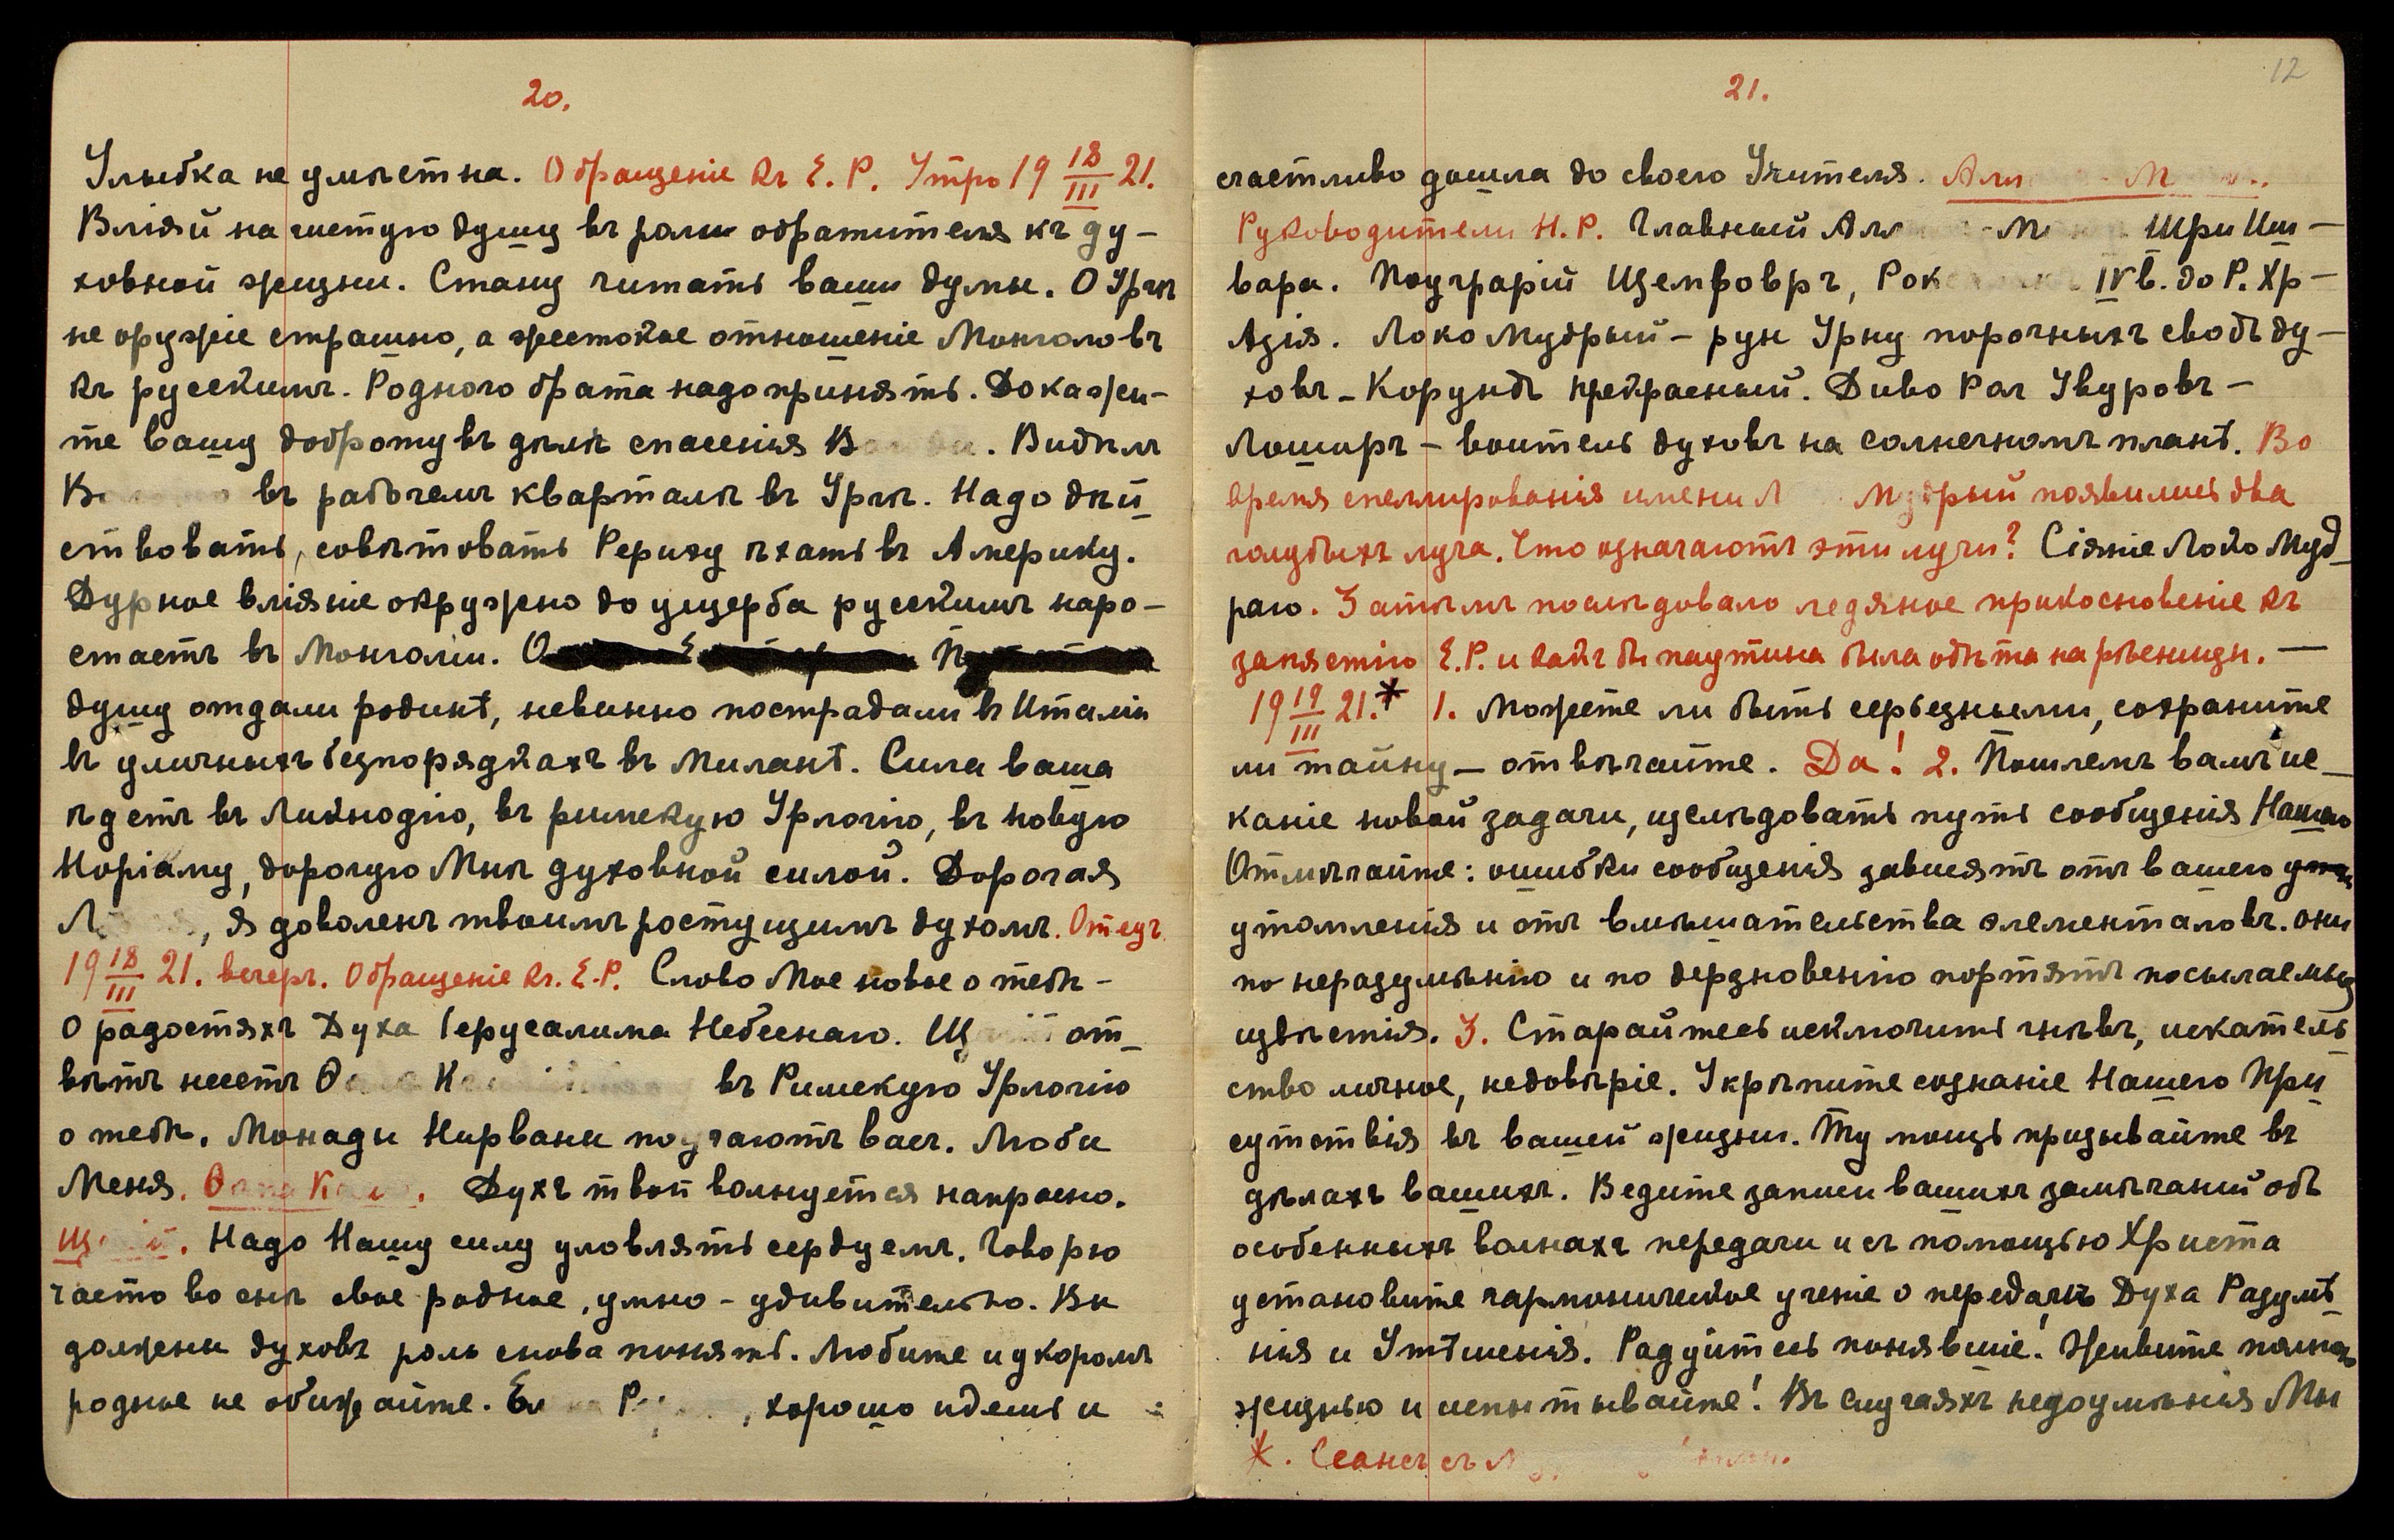 20.
Улыбка не умѣстна. Обращеніе къ Е. Р. Утро 19 18/III 21.
Вліяй на чистую душу въ роли обратителя къ ду-
ховной жизни. Стану читать ваши думы. О Ургѣ
не оружіе страшно, а жестокое отношеніе Монголовъ
къ русскимъ. Родного брата надо принять. Докажи-
те вашу доброту въ дѣлѣ спасенія. Видѣлъ
въ рабочемъ кварталѣ въ Ургѣ. Надо дѣй-
ствовать, совѣтовать Рериху ѣхать въ Америку.
Дурное вліяніе окружено до ущерба русскимъ наро-
стаетъ въ Монголіи.
душу отдали родинѣ, невинно пострадали въ Италіи
въ уличныхъ безпорядкахъ въ Миланѣ. Сила ваша
ѣдетъ въ Ликнодію, въ римскую Урлогію, въ новую
Норіаму, дорогую Мнѣ духовной силой. Дорогая
, я доволенъ твоимъ ростущимъ духомъ. Отецъ.
19 18/III 21. вечеръ. Обращеніе къ Е.Р. Слово Мое новое о тебѣ -
О радостяхъ Духа Іерусалима Небеснаго. от-
вѣтъ несетъ въ Римскую Урлогію
о тебѣ. Монады Нирваны поучаютъ васъ. Люби
Меня. Духъ твой волнуется напрасно.
Надо Нашу силу уловлять сердцемъ. Говорю
часто во снѣ свое родное, умно - удивительно. Вы
должны духовъ роль снова понять. Любите и укоромъ
родное не обижайте. , хорошо идешь и
12
21.
счастливо дошла до своего Учителя.
Руководители Н.Р. Главный Шри Иш-
вара. Поузрарій Щемфовръ, IVв. до Р. Хр-
Азія. Локо Мудрый - рун Урну порочныхъ сводъ ду-
ховъ - Корундъ прекрасный. Диво Рал Увуровъ -
Лоширъ - воитель духовъ на солнечномъ планѣ. Во
время спеллированія имени Мудрый появились два
голубыхъ луча. Что означаютъ эти лучи? Сіяніе Локо Муд-
раго. Затѣмъ послѣдовало ледяное прикосновеніе къ
запястію Е.Р. и какъ бы паутина была одѣта на рѣсницы. —
19 19/III 21.* 1. Можете ли быть серьезными, сохраните
ли тайну - отвѣчайте. Да! 2. Пошлемъ вамъ ис-
каніе новой задачи, изслѣдовать путь сообщенія Нашего
Отмѣчайте: ошибки сообщенія зависятъ отъ вашего
утомленія и отъ вмѣшательства элементаловъ. они
по неразумѣнію и по дерзновенію портятъ посылаемыя
извѣстія. 3. Старайтесь исключить гнѣвъ, искатель-
ство личное, недовѣріе. Укрѣпите сознаніе Нашего При-
сутствія въ вашей жизни. Ту мощь призывайте въ
дѣлахъ вашихъ. Ведите записи вашихъ замѣчаній объ
особенныхъ волнахъ передачи и съ помощью Христа
установите гармоническое ученіе о передачѣ Духа Разумѣ-
нія и Утѣшенія. Радуйтесь понявшіе! Живите полной
жизнью и испытывайте! Въ случаяхъ недоумѣнія Мы
*. Сеансъ съ